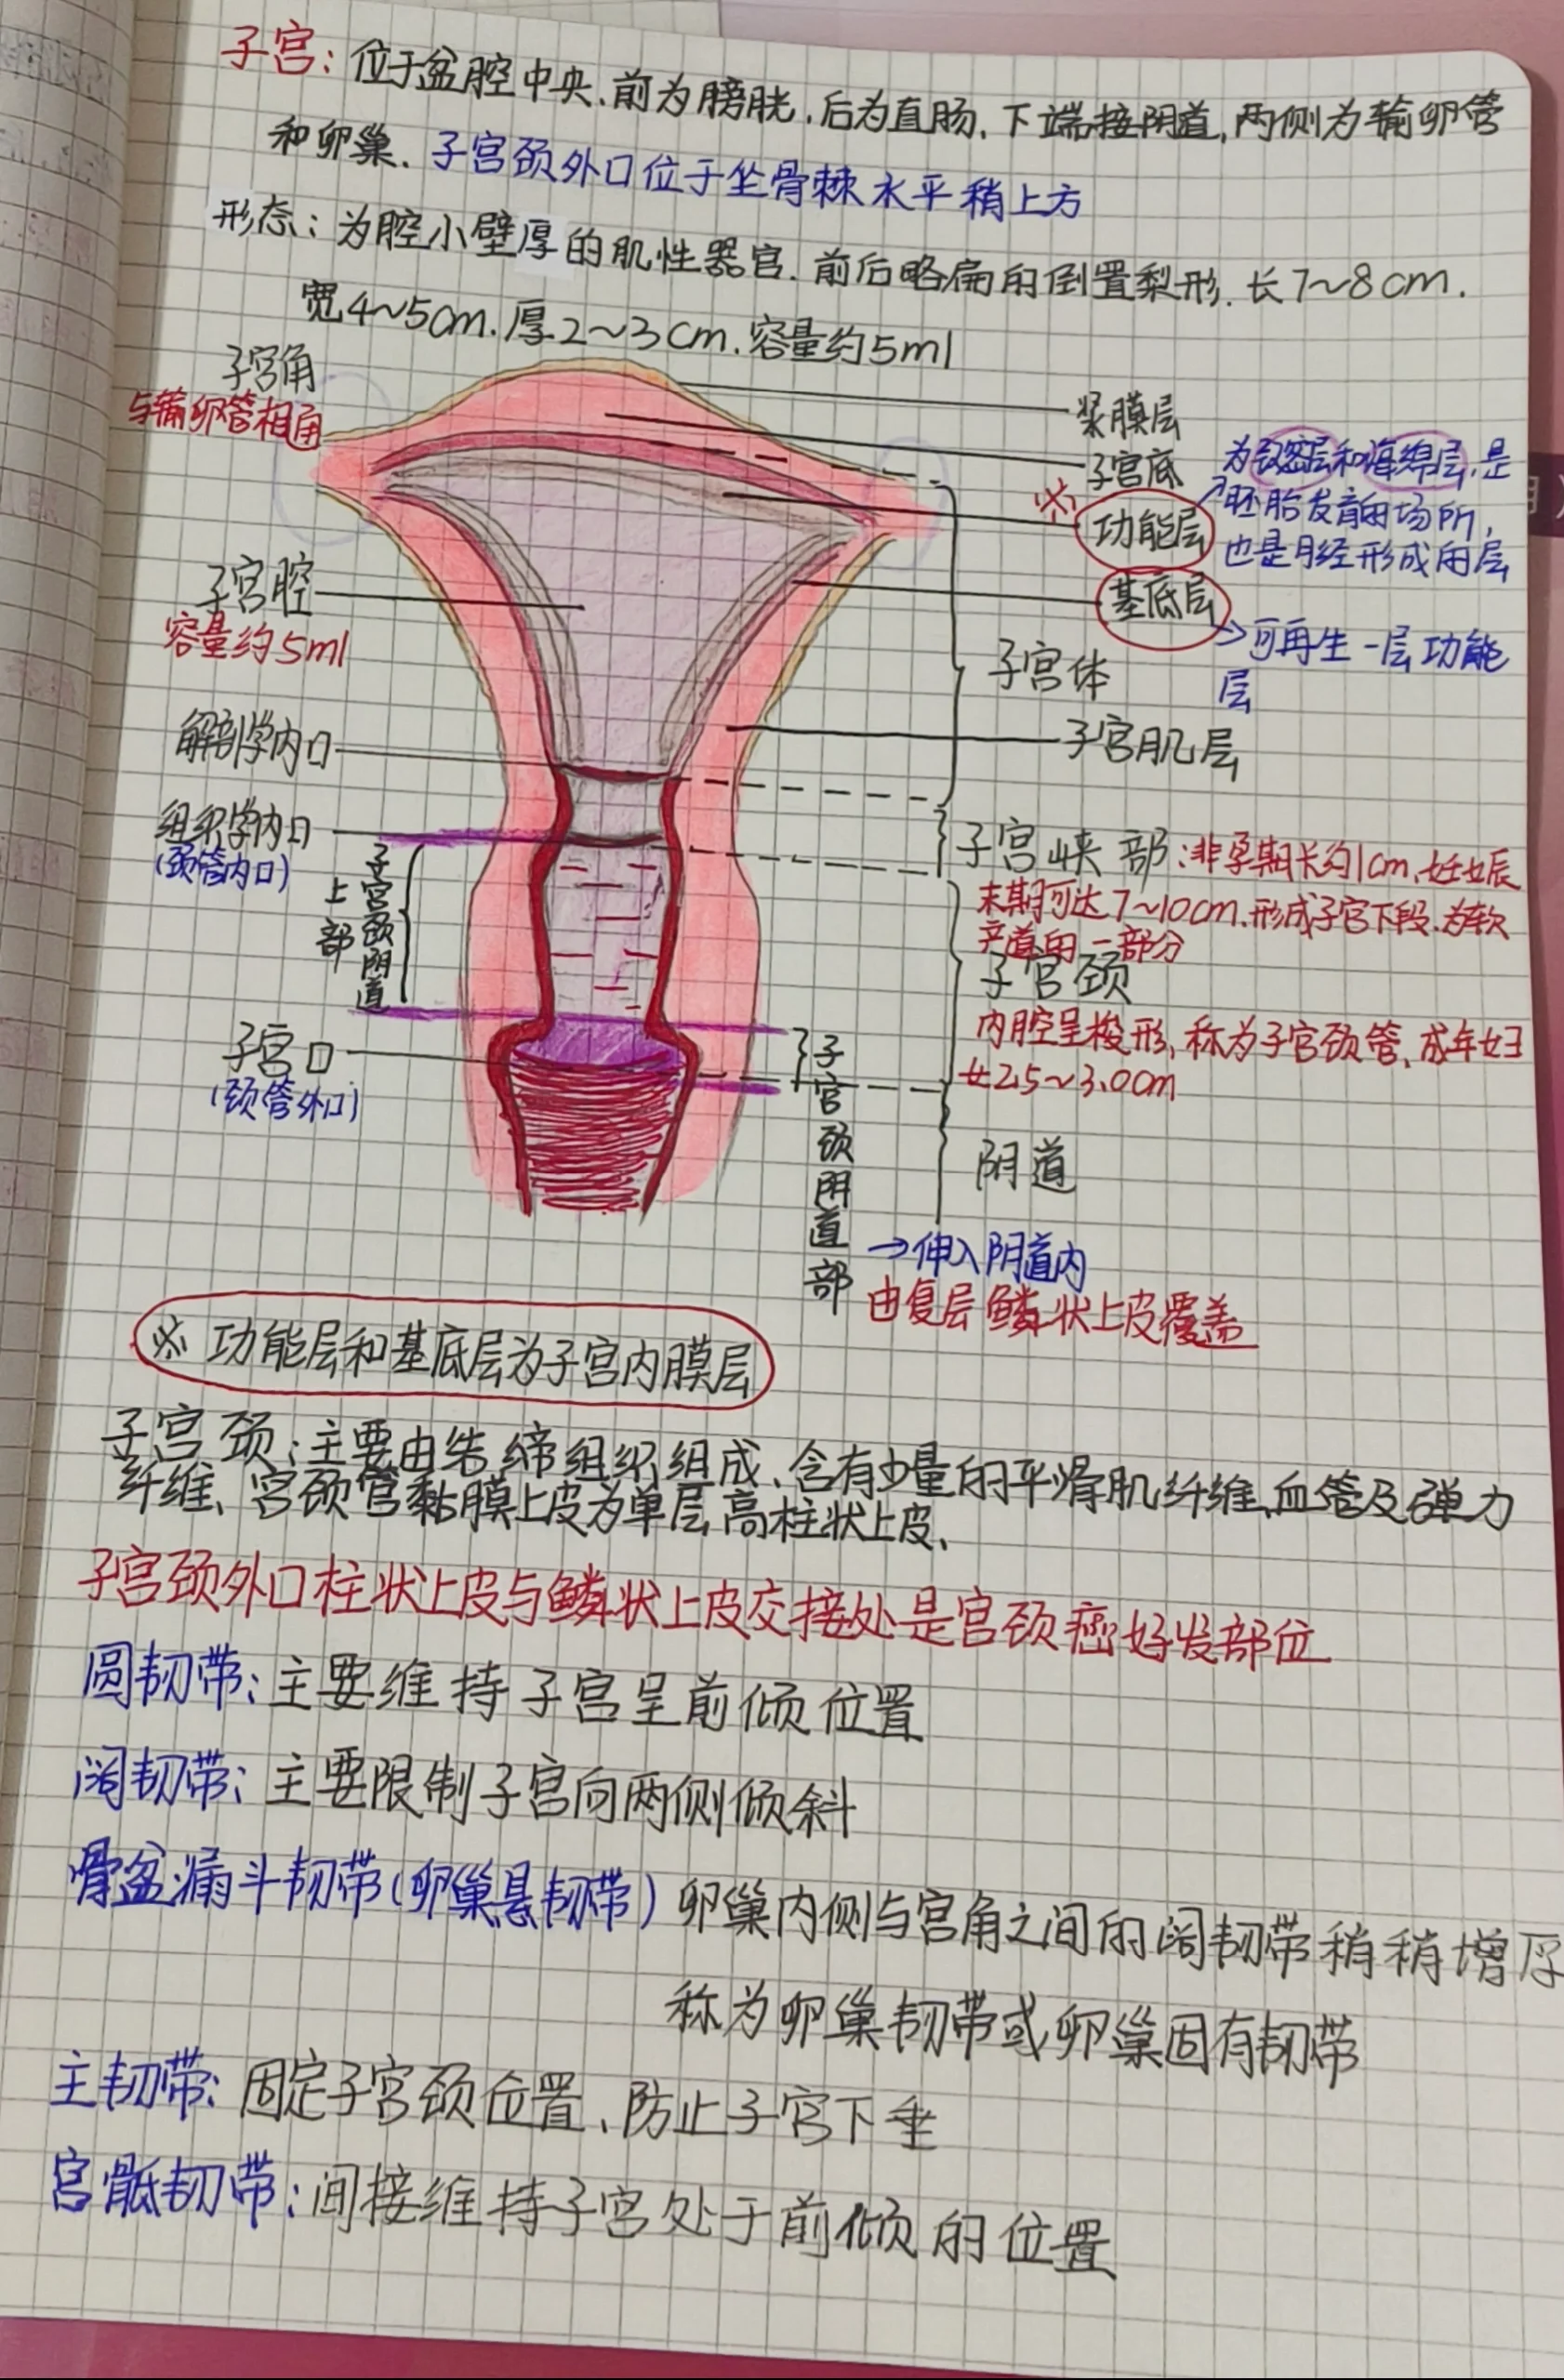 子宫：位于盆腔中央、前为膀胱，后为直肠、下端接阴道，两侧为输卵管
和卵巢、子宫颈外口位于坐骨棘水平稍上方
形态：为腔小壁厚的肌性器官、前后略扁的倒置梨形、长7~8cm.
宽4~5cm.厚2~3cm.容量约5ml
子宫角
与输卵管相通
浆膜层
子宫底
※
功能层
为致密层和海绵层，是
胚胎发育的场所，
也是月经形成的层
基底层
→可再生一层功能
层
子宫腔
容量约5ml
子宫体
子宫肌层
解剖学内口
组织学内口
(颈管内口)
子宫颈阴道
上部
子宫峡部：非孕期长约1cm、妊娠
末期可达7~10cm.形成子宫下段.为软
产道的一部分
子宫颈
内腔呈梭形、称为子宫颈管、成年妇
女2.5~3.0cm
子宫口
(颈管外口)
子宫颈阴道部
阴道
→伸入阴道内
由复层鳞状上皮覆盖
※ 功能层和基底层为子宫内膜层
子宫颈：主要由结缔组织组成、含有少量的平滑肌纤维、血管及弹力
纤维、宫颈管黏膜上皮为单层高柱状上皮、
子宫颈外口柱状上皮与鳞状上皮交接处是宫颈癌好发部位
圆韧带：主要维持子宫呈前倾位置
阔韧带：主要限制子宫向两侧倾斜
骨盆漏斗韧带(卵巢悬韧带) 卵巢内侧与宫角之间的阔韧带稍稍增厚
称为卵巢韧带或卵巢固有韧带
主韧带：固定子宫颈位置、防止子宫下垂
宫骶韧带：间接维持子宫处于前倾的位置